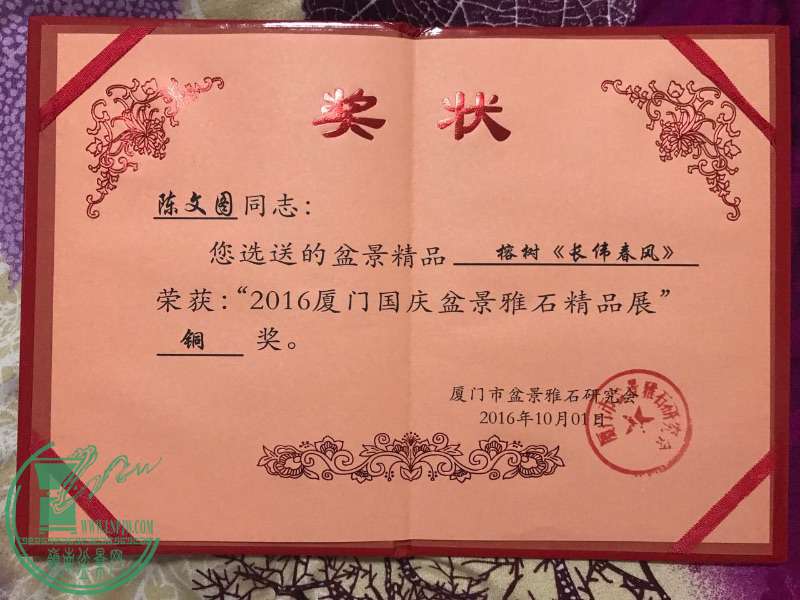 奖状
陈文图同志：
您选送的盆景精品 榕树《长伟春风》
荣获：“2016厦门国庆盆景雅石精品展”
铜 奖。
厦门市盆景雅石研究会
2016年10月01日
厦门市盆景雅石研究会
WWW.LNPJW.COM
岭南盆景网